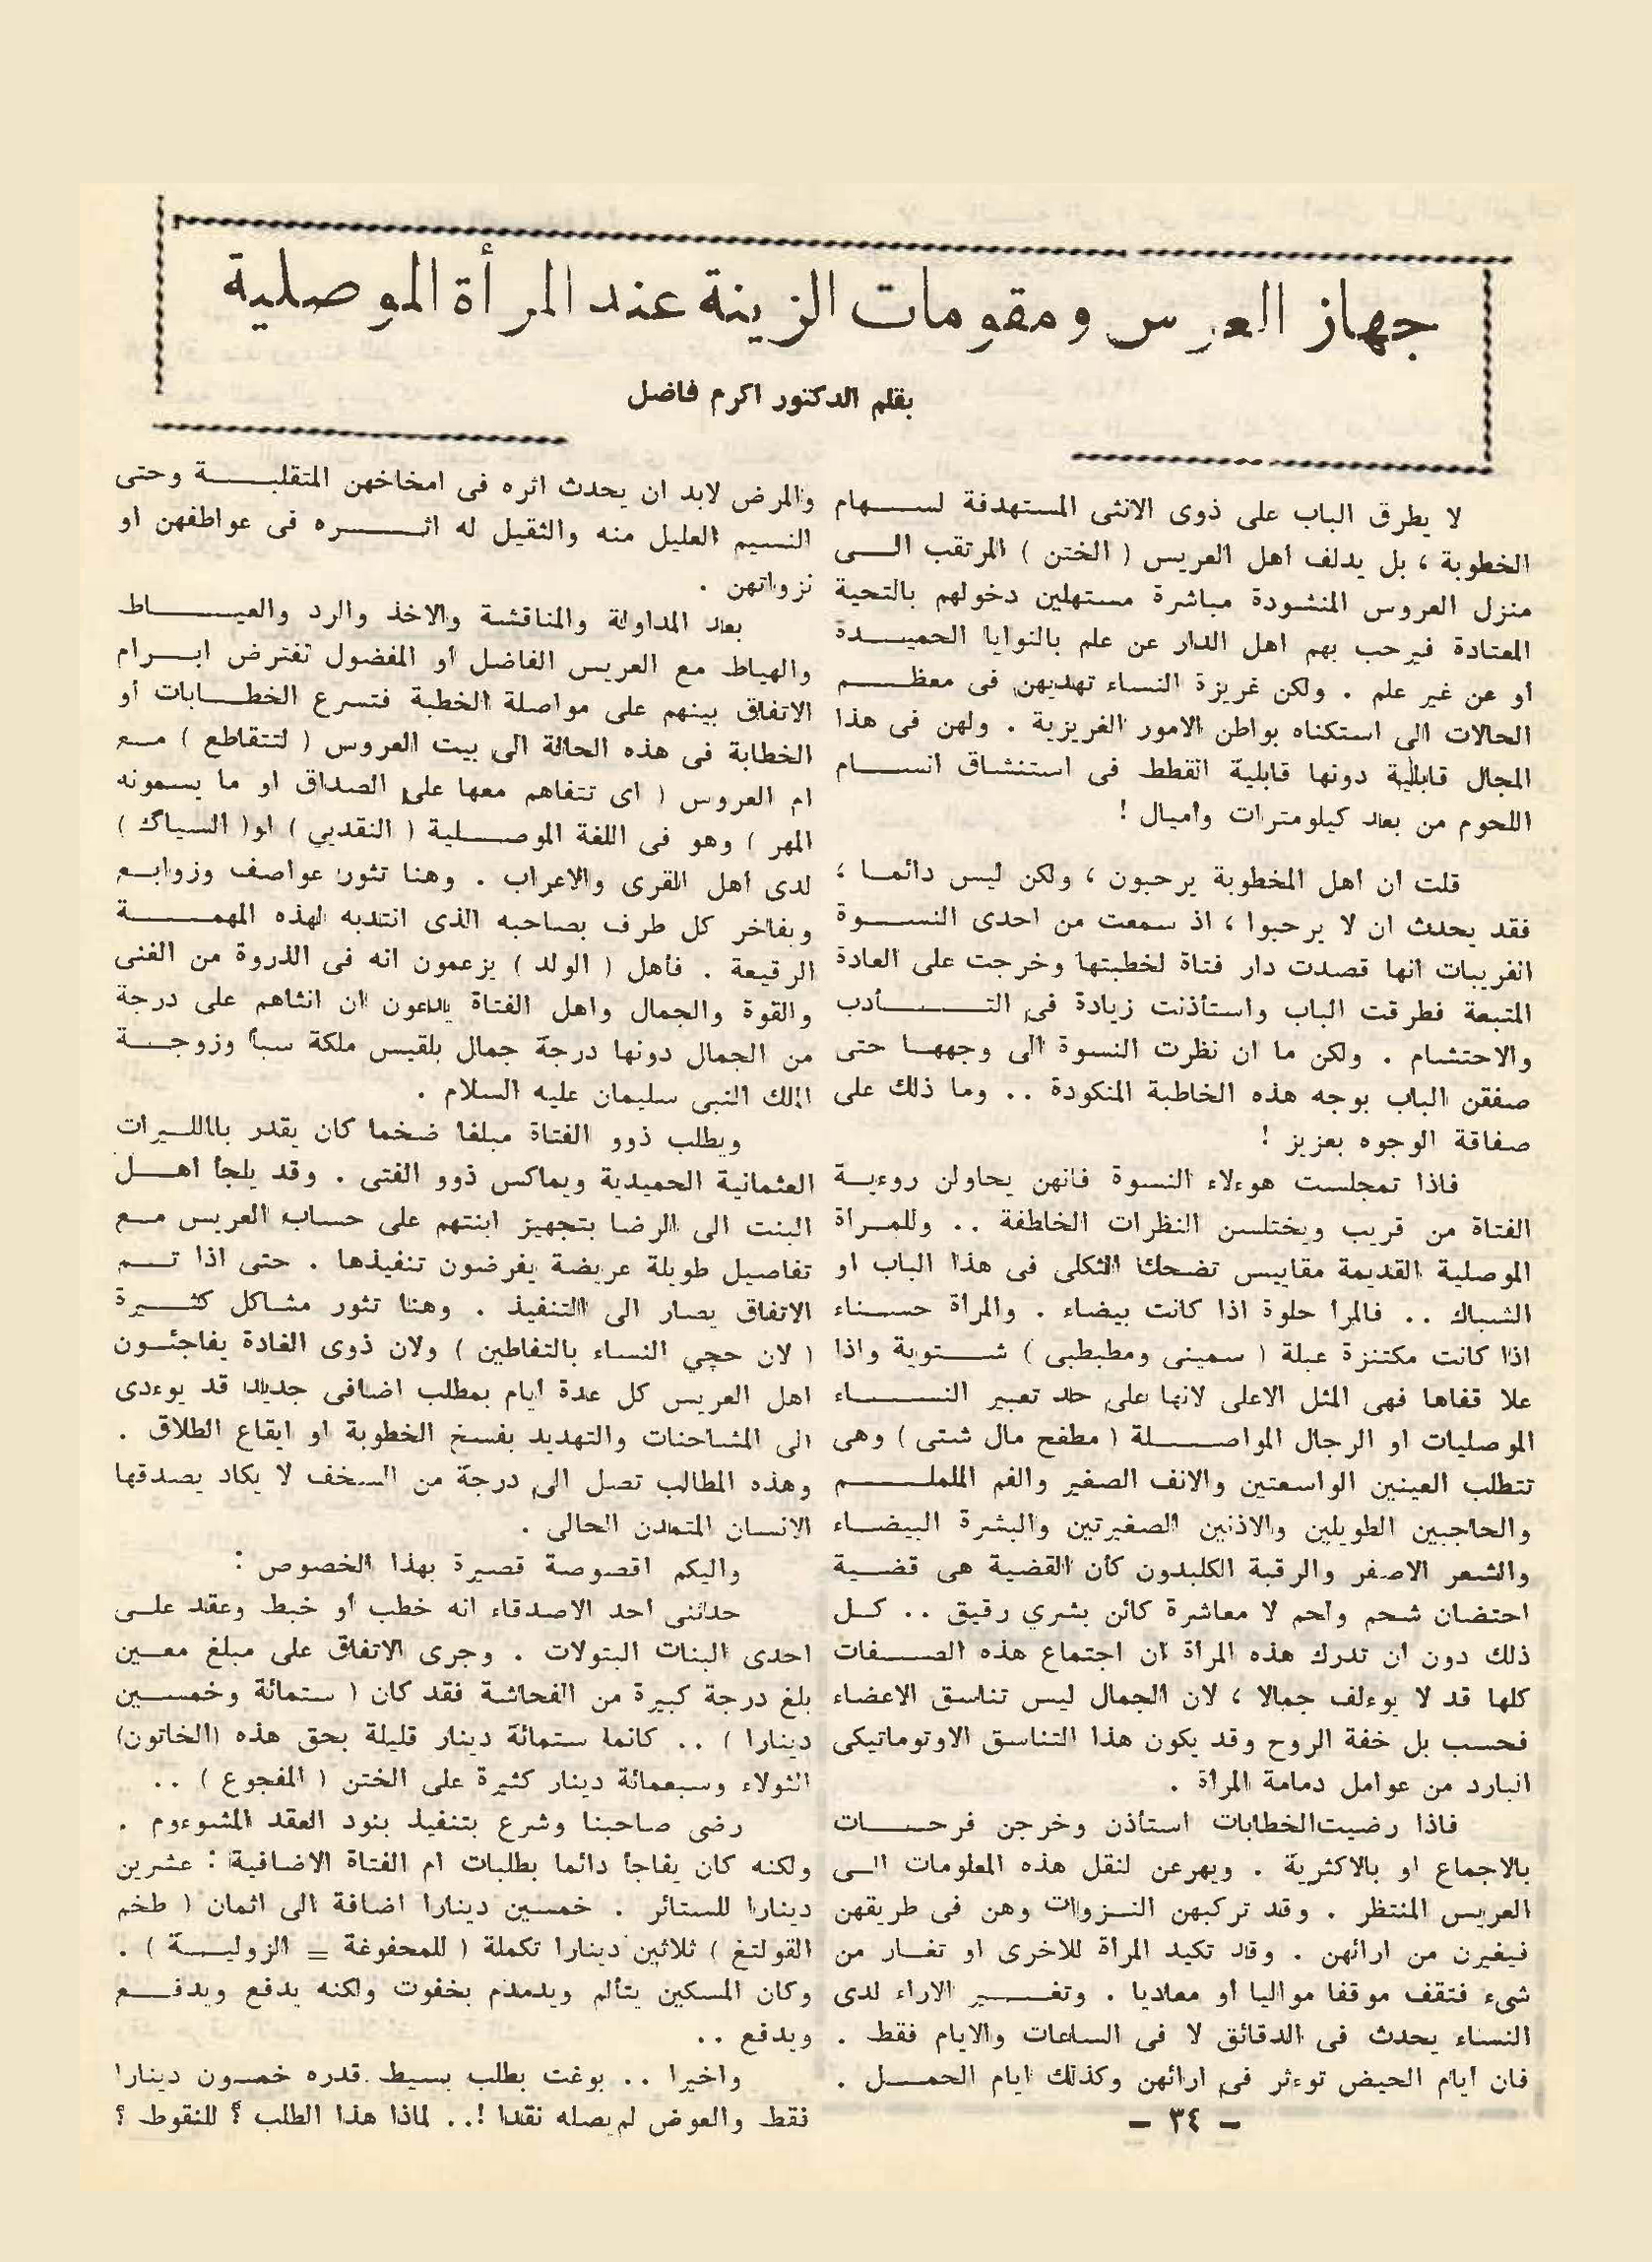 جهاز العرس ومقومات الزينة عند المرأة الموصلية
بقلم الدكتور اكرم فاضل
لا يطرق الباب على ذوى الانثى المستهدفة لسهام
الخطوبة ، بل يدلف أهل العريس ( الختن ) المرتقب الى
منزل العروس المنشودة مباشرة مستهلين دخولهم بالتحية
المعتادة فيرحب بهم اهل الدار عن علم بالنوايا الحميدة
أو عن غير علم . ولكن غريزة النساء تهديهن فى معظم
الحالات الى استكناه بواطن الامور الغريزية . ولهن فى هذا
المجال قابلية دونها قابلية القطط فى استنشاق انسام
اللحوم من بعد كيلومترات وأميال !
قلت ان أهل المخطوبة يرحبون ، ولكن ليس دائما ،
فقد يحدث ان لا يرحبوا ، اذ سمعت من احدى النسوة
القريبات انها قصدت دار فتاة لخطبتها وخرجت على العادة
المتبعة فطرقت الباب واستأذنت زيادة فى التأدب
والاحتشام . ولكن ما ان نظرت النسوة الى وجهها حتى
صفقن الباب بوجه هذه الخاطبة المنكودة .. وما ذلك على
صفاقة الوجوه بعزيز !
فاذا تمجلست هوءلاء النسوة فانهن يحاولن روءية
الفتاة من قريب ويختلسن النظرات الخاطفة .. وللمرأة
الموصلية القديمة مقاييس تضحك الثكلى فى هذا الباب او
الشباك .. فالمرا حلوة اذا كانت بيضاء . والمرأة حسناء
اذا كانت مكتنزة عبلة ( سمينى ومطبطبى ) شتوية واذا
علا قفاها فهى المثل الاعلى لانها على حد تعبير النساء
الموصليات او الرجال المواصلة ( مطفح مال شتى ) وهى
تتطلب العينين الواسعتين والانف الصغير والفم الململم
والحاجبين الطويلين والاذنين الصغيرتين والبشرة البيضاء
والشعر الاصفر والرقبة الكلبدون كأن القضية هى قضية
احتضان شحم ولحم لا معاشرة كائن بشري رقيق .. كل
ذلك دون ان تدرك هذه المرأة ان اجتماع هذه الصفات
كلها قد لا يوءلف جمالا ، لان الجمال ليس تناسق الاعضاء
فحسب بل خفة الروح وقد يكون هذا التناسق الاوتوماتيكى
البارد من عوامل دمامة المرأة .
فاذا رضيت الخطابات استأذن وخرجن فرحات
بالاجماع او بالاكثرية . ويهرعن لنقل هذه المعلومات الى
العريس المنتظر . وقد تركبهن النزوات وهن فى طريقهن
فيغيرن من ارائهن . وقد تكيد المرأة للاخرى او تغار من
شىء فتقف موقفا مواليا أو معاديا . وتغير الاراء لدى
النساء يحدث فى الدقائق لا فى الساعات والايام فقط .
فان ايام الحيض توءثر فى ارائهن وكذلك ايام الحمل .
والمرض لابد ان يحدث اثره فى امخاخهن المتقلبة وحتى
النسيم العليل منه والثقيل له اثره فى عواطفهن او
نزواتهن .
بعد المداولة والمناقشة والاخذ والرد والعياط
والهياط مع العريس الفاضل او المفضول نفترض ابرام
الاتفاق بينهم على مواصلة الخطبة فتسرع الخطابات أو
الخطابة فى هذه الحالة الى بيت العروس ( لتتقاطع ) مع
ام العروس ( اى تتفاهم معها على الصداق او ما يسمونه
المهر ) وهو فى اللغة الموصلية ( النقديي ) او( السياگ )
لدى أهل القرى والاعراب . وهنا تثور عواصف وزوابع
ويفاخر كل طرف بصاحبه الذى انتدبه لهذه المهمة
الرقيعة . فأهل ( الولد ) يزعمون انه فى الذروة من الغنى
والقوة والجمال واهل الفتاة يدعون ان انثاهم على درجة
من الجمال دونها درجة جمال بلقيس ملكة سبأ وزوجة
الملك النبى سليمان عليه السلام .
ويطلب ذوو الفتاة مبلغا ضخما كان يقدر بالليرات
العثمانية الحميدية ويماكس ذوو الفتى . وقد يلجأ أهل
البنت الى الرضا بتجهيز ابنتهم على حساب العريس مع
تفاصيل طويلة عريضة يفرضون تنفيذها . حتى اذا تم
الاتفاق يصار الى التنفيذ . وهنا تثور مشاكل كثيرة
( لان حچي النساء بالتفاطين ) ولان ذوى الغادة يفاجئون
اهل العريس كل عدة ايام بمطلب اضافى جديد قد يوءدى
الى المشاحنات والتهديد بفسخ الخطوبة او ايقاع الطلاق .
وهذه المطالب تصل الى درجة من السخف لا يكاد يصدقها
الانسان المتمدن الحالى .
واليكم اقصوصة قصيرة بهذا الخصوص :
حدثنى احد الاصدقاء انه خطب أو خبط وعقد على
احدى البنات البتولات . وجرى الاتفاق على مبلغ معين
بلغ درجة كبيرة من الفحاشة فقد كان ( ستمائة وخمسين
دينارا ) .. كانما ستمائة دينار قليلة بحق هذه (الخاتون)
الثولاء وسبعمائة دينار كثيرة على الختن ( المفجوع ) ..
رضى صاحبنا وشرع بتنفيذ بنود العقد المشوءوم .
ولكنه كان يفاجأ دائما بطلبات ام الفتاة الاضافية : عشرين
دينارا للستائر . خمسين دينارا اضافة الى اثمان ( طخم
القولتغ ) ثلاثين دينارا تكملة ( للمحفوغة = الزولية ) .
وكان المسكين يتألم ويدمدم بخفوت ولكنه يدفع ويدفع
ويدفع ..
واخيرا .. بوغت بطلب بسيط قدره خمسون دينارا
فقط والعوض لم يصله نقدا !.. لماذا هذا الطلب ؟ للنقوط ؟
- ٣٤ -